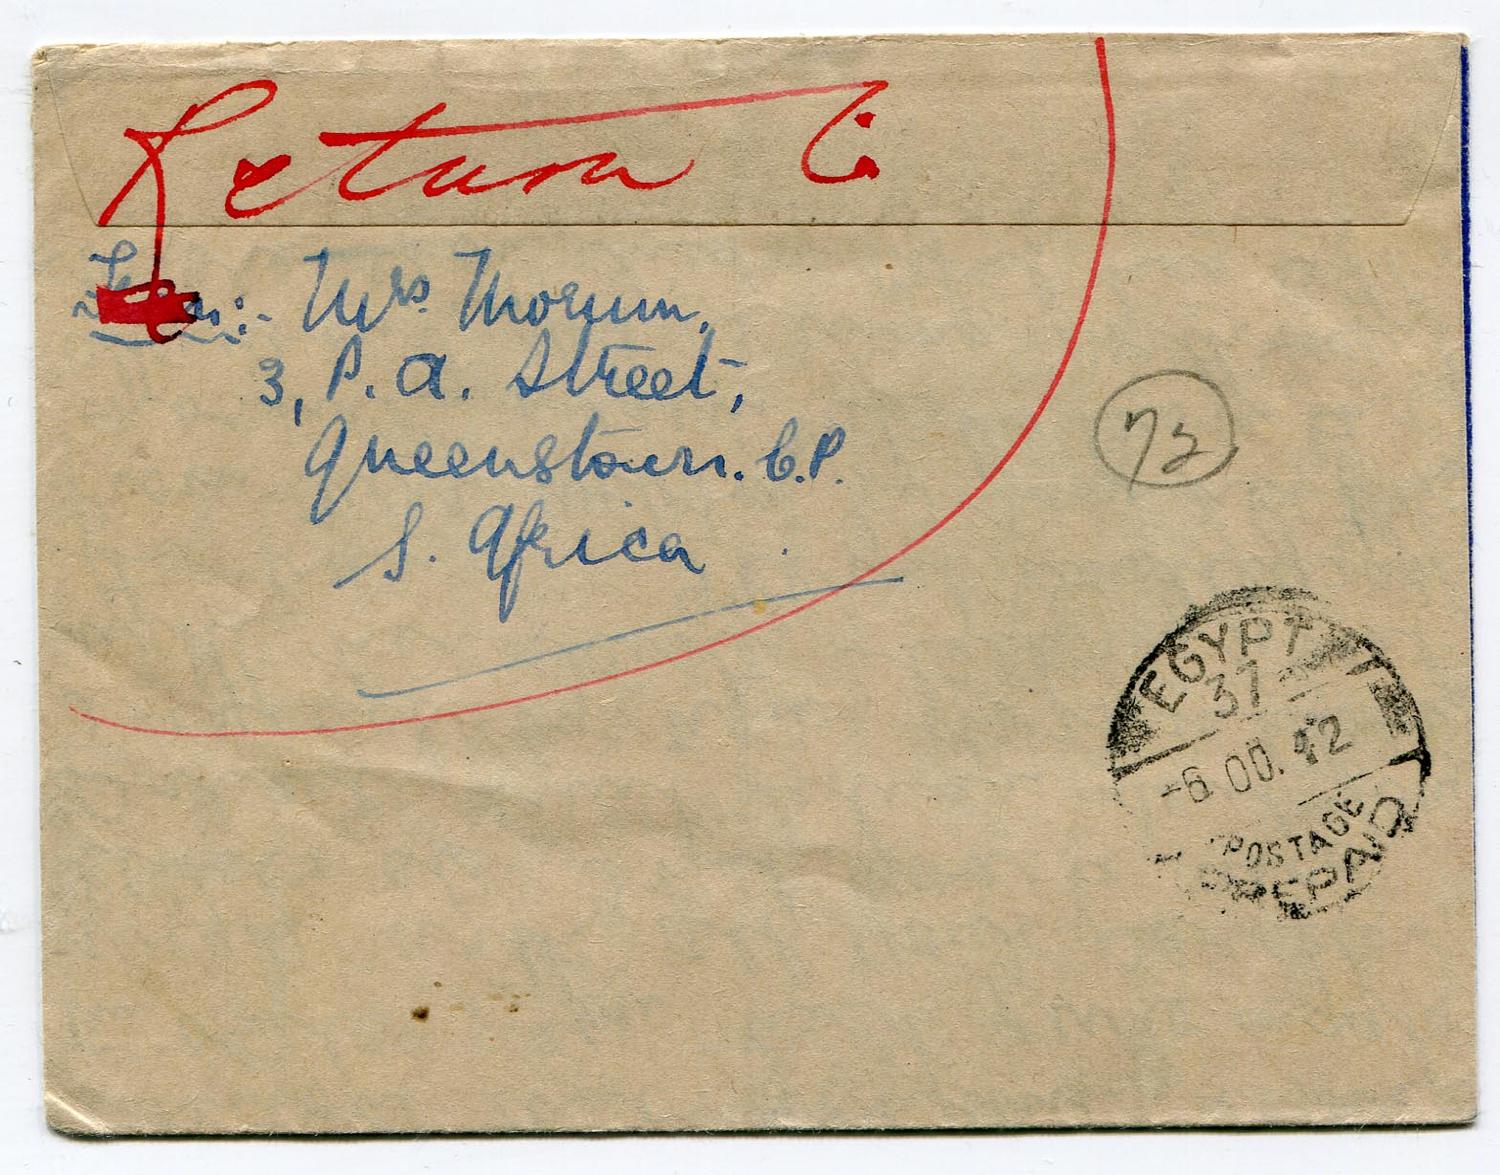 Return to:
From:- Mrs Morum,
3, P. A. Street,
Queenstown. C.P.
S. Africa
72
EGYPT
37
-6 OC. 42
POSTAGE
PREPAID